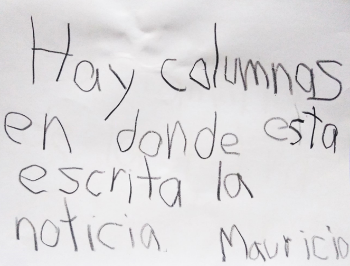 Hay columnas
en donde esta
escrita la
noticia. Mauricio